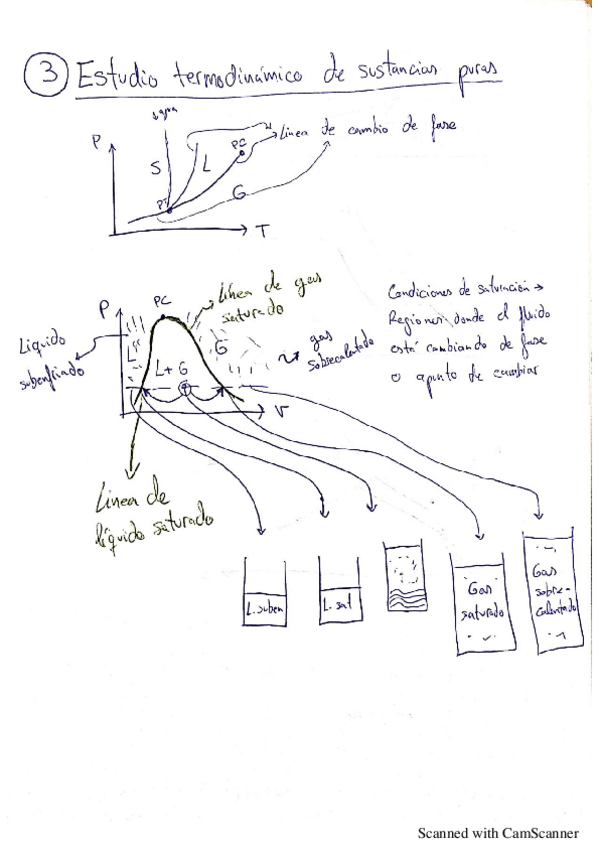 3 Estudio termodinámico de sustancias puras
agua
P
S
L
PC
Línea de cambio de fase
PT
G
T
P
PC
Línea de gas
saturado
Líquido
subenfriado
L
L+G
G
gas
sobrecalentado
V
Condiciones de saturación →
Regiones donde el fluido
está cambiando de fase
o apunto de cambiar
Línea de
líquido saturado
L. suben
L. sat
Gas
saturado
Gas
sobre-
calentado
Scanned with CamScanner